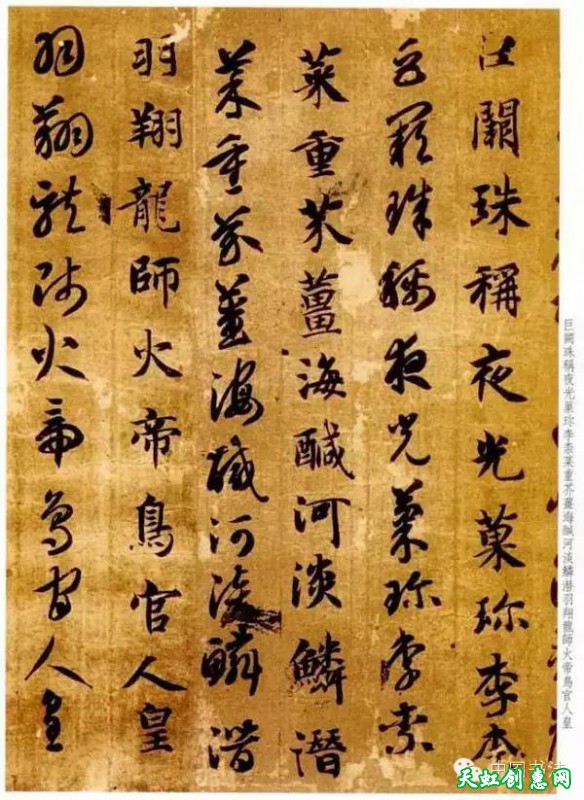 巨闕珠稱夜光菓珎李柰
巨闕珠稱夜光菓珎李柰
菜重芥薑海醎河淡鱗潛
菜重芥薑海醎河淡鱗潛
羽翔龍師火帝鳥官人皇
羽翔龍師火帝鳥官人皇
巨闕珠稱夜光菓珎李柰菜重芥薑海醎河淡鱗潜羽翔龍師火帝鳥官人皇
中国书法
天虹创惠网